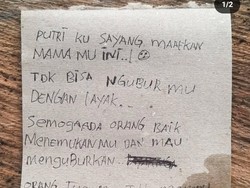 1/2
PUTRI KU SAYANG MAAFKAN
MAMA MU INI..!
TDK BISA NGUBUR MU
DENGAN LAYAK...
SEMOGA ADA ORANG BAIK
MENEMUKAN MU DAN MAU
MENGUBURKAN..